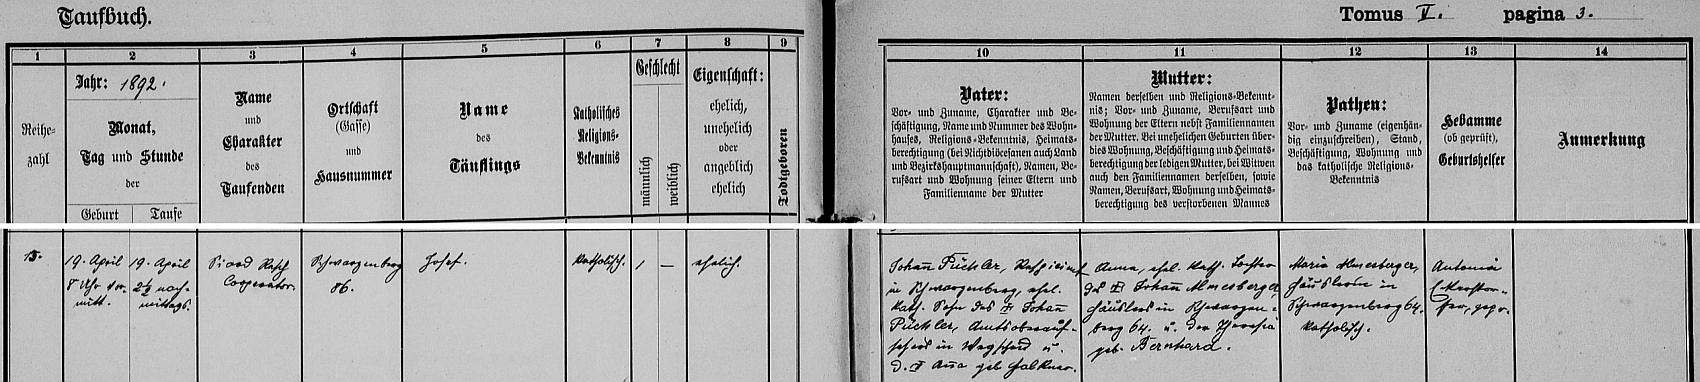 Taufbuch.
Tomus V. pagina 3.
1 2 3 4 5 6 7 8 9 10 11 12 13 14
Reihe-
zahl
Jahr: 1892.
Monat,
Tag und Stunde
der
Geburt
Taufe
Name
und
Charakter
des
Taufenden
Ortschaft
(Gasse)
und
Hausnummer
Name
des
Täuflings
Katholisches
Religions-
Bekenntnis
Geschlecht
männlich
weiblich
Eigenschaft:
ehelich,
unehelich
oder
angeblich
ehelich
Todtgeboren
Vater:
Vor- und Zuname, Charakter und Be-
schäftigung, Name und Nummer des Wohn-
hauses, Religions-Bekenntnis, Heimats-
berechtigung (bei Nichtdiöcesanen auch Land
und Bezirkshauptmannschaft), Namen, Be-
rufsart und Wohnung seiner Eltern und
Familienname der Mutter
Mutter:
Namen derselben und Religions-Bekennt-
nis; Vor- und Zuname, Berufsart und
Wohnung der Eltern nebst Familiennamen
der Mutter. Bei unehelichen Geburten über-
dies Wohnung, Beschäftigung und Heimats-
berechtigung der ledigen Mutter, bei Witwen
auch den Familiennamen derselben, sowie
Namen, Berufsart, Wohnung und Heimats-
berechtigung des verstorbenen Mannes
Pathen:
Vor- und Zuname (eigenhän-
dig einzuschreiben), Stand,
Beschäftigung, Wohnung und
das katholische Religions-
Bekenntnis
Hebamme
(ob geprüft),
Geburtshelfer
Anmerkung
15.
19. April
8 Uhr vor-
mitt.
19. April
2½ nach-
mittags.
Cooperator.
Schwarzenberg
86.
Josef.
katholisch.
1
—
ehelich.
Johann Pückler,
in Schwarzenberg, ehel.
kath. Sohn des † Johann
Pückler, Amtsoberauf-
sehers in Wegscheid u.
d. † Anna geb. Falkner.
Anna, ehel. kath. Tochter
des † Johann Almesberger,
Häuslers in Schwarzen-
berg 64. u. der Theresia
geb. Bernhard.
Maria Almesberger,
Häuslerin in
Schwarzenberg 64.
katholisch.
Antonia
gepr.